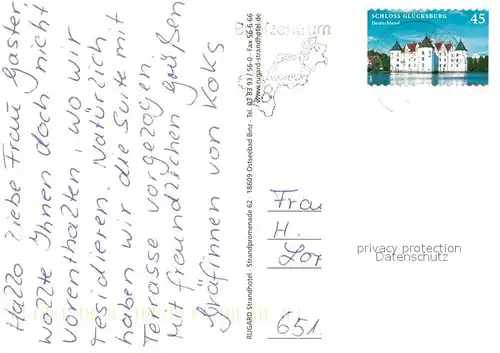 Hallo liebe Frau Gaster
wollte Ihnen doch nicht
vorenthalten, wo wir
residieren. Natürlich
haben wir die Suite mit
Terrasse vorgezogen.
Mit freundlichen Grüßen
Gräfinnen von Koks
RUGARD Strandhotel · Strandpromenade 62 · 18609 Ostseebad Binz · Tel. 03 83 93/56-0 · Fax 56-6 66
www.rugard-strandhotel.de
SCHLOSS GLÜCKSBURG
Deutschland
45
Frau
H.
651
privacy protection
Datenschutz